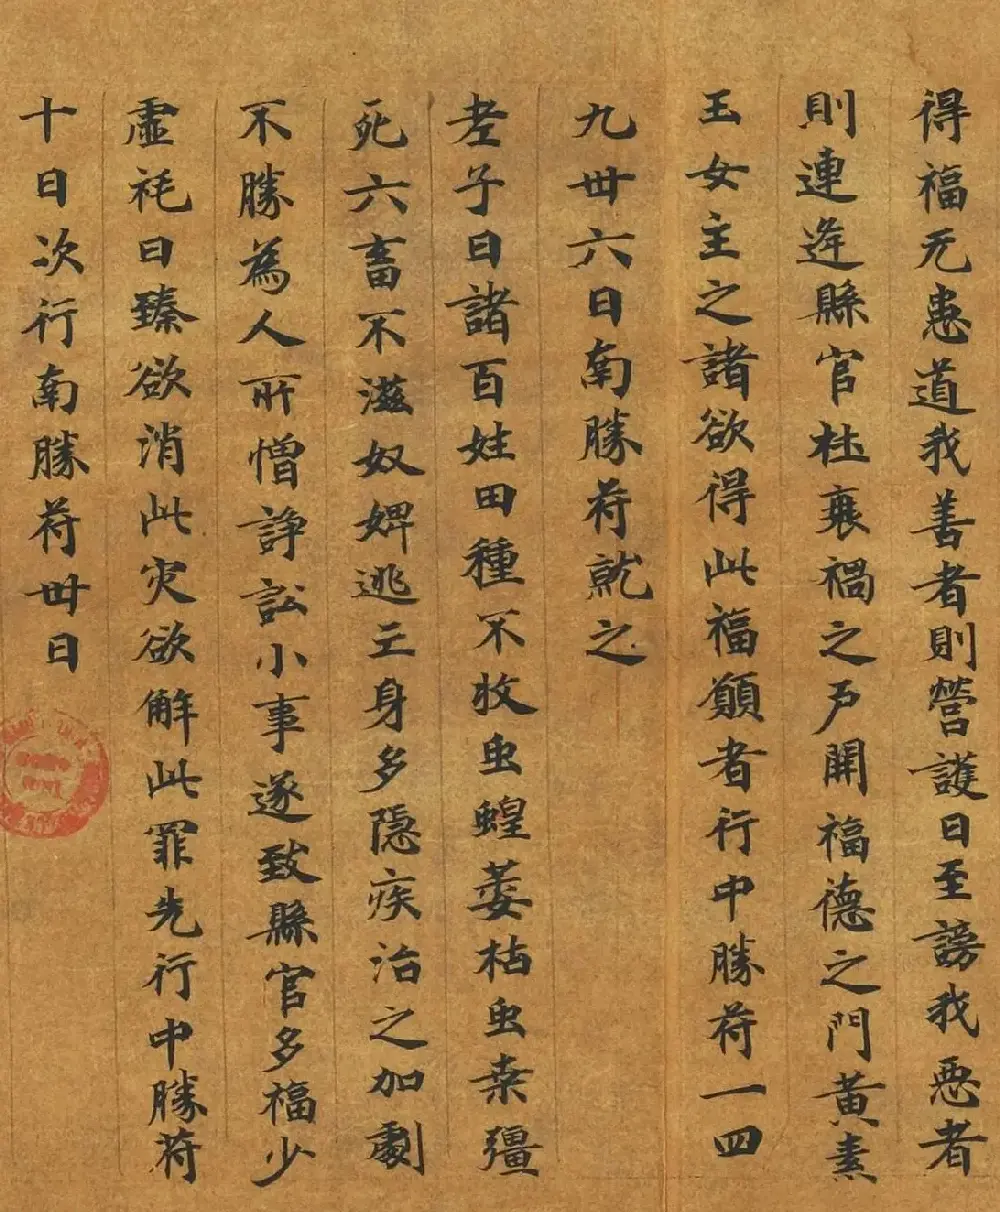 得福无患道我善者則營護日至謗我惡者
則連逆縣官杜襄禍之戶開福德之門黃素
玉女主之諸欲得此福願者行中勝荷一四
九卌六日南勝荷就之
老子曰諸百姓田種不收虫蝗萎枯虫桒殭
死六畜不滋奴婢逃亡身多隱疾治之加劇
不勝為人所憎諍訟小事遂致縣官多福少
虛秏日臻欲消此灾欲解此罪先行中勝荷
十日次行南勝荷卌日